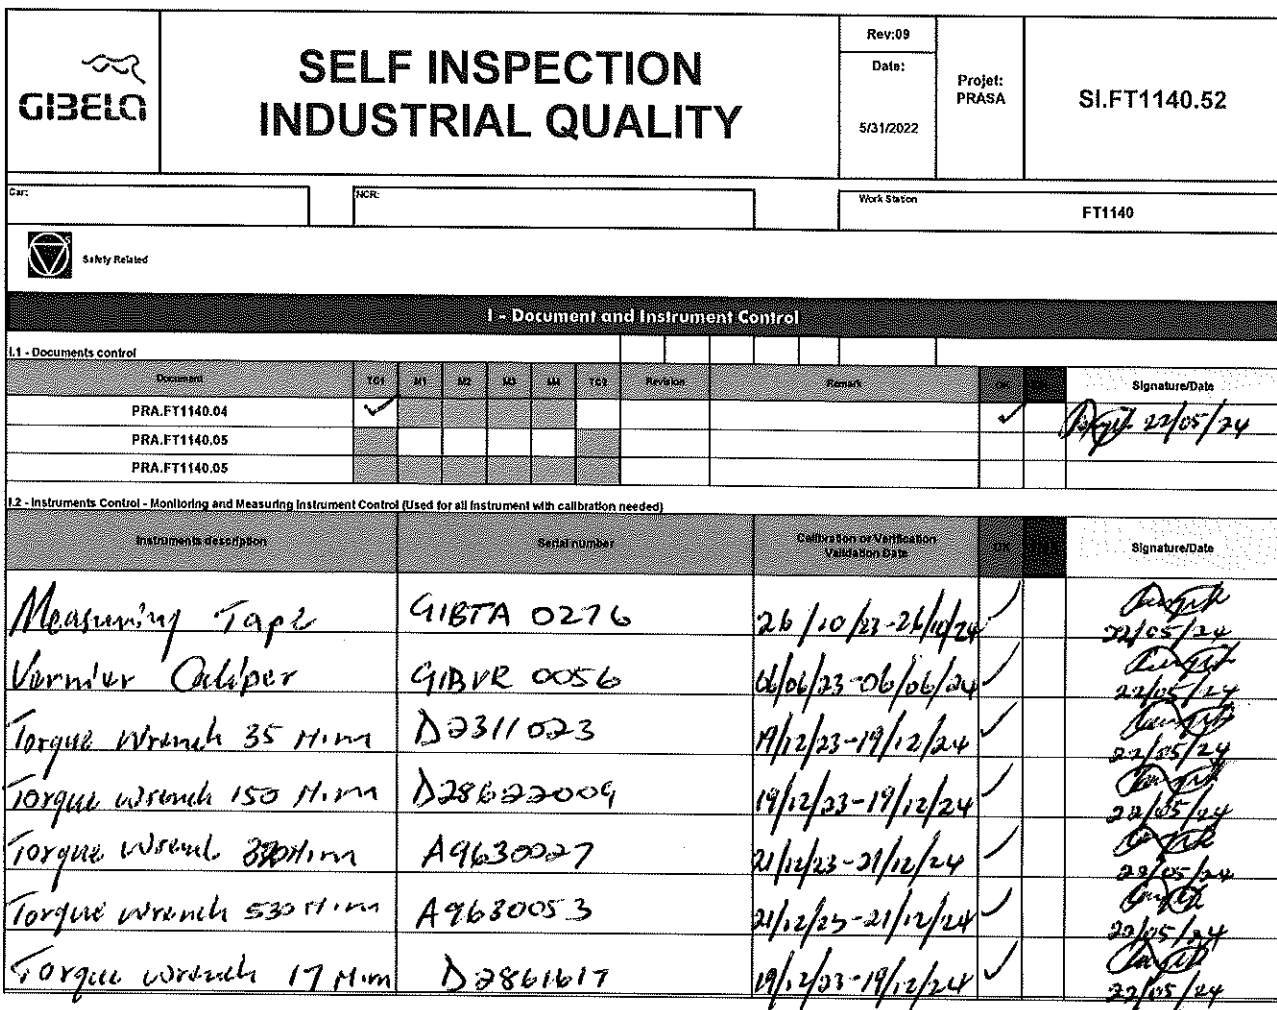 GIBELA
SELF INSPECTION
INDUSTRIAL QUALITY
Rev:09
Date:
5/31/2022
Projet:
PRASA
SI.FT1140.52
Car:
NCR:
Work Station
FT1140
Safety Related
I - Document and Instrument Control
I.1 - Documents control
Document TC1 M1 M2 M3 M4 TC2 Revision Remark OK Signature/Date
PRA.FT1140.04 ✓ ✓ 22/05/24
PRA.FT1140.05
PRA.FT1140.05
I.2 - Instruments Control - Monitoring and Measuring Instrument Control (Used for all instrument with calibration needed)
Instruments description Serial number Calibration or Verification Validation Date OK Signature/Date
Measuring Tape GIBTA 0276 26/10/23-26/10/24 ✓ 22/05/24
Vernier Caliper GIBVR 0056 06/06/23-06/06/24 ✓ 22/05/24
Torque Wrench 35 N.m D2311023 19/12/23-19/12/24 ✓ 22/05/24
Torque wrench 150 N.m D28622009 19/12/23-19/12/24 ✓ 22/05/24
Torque wrench N.m A9630027 21/12/23-21/12/24 ✓ 22/05/24
Torque wrench 530 N.m A9630053 21/12/23-21/12/24 ✓ 22/05/24
Torque wrench 17 N.m D2861617 19/12/23-19/12/24 ✓ 22/05/24